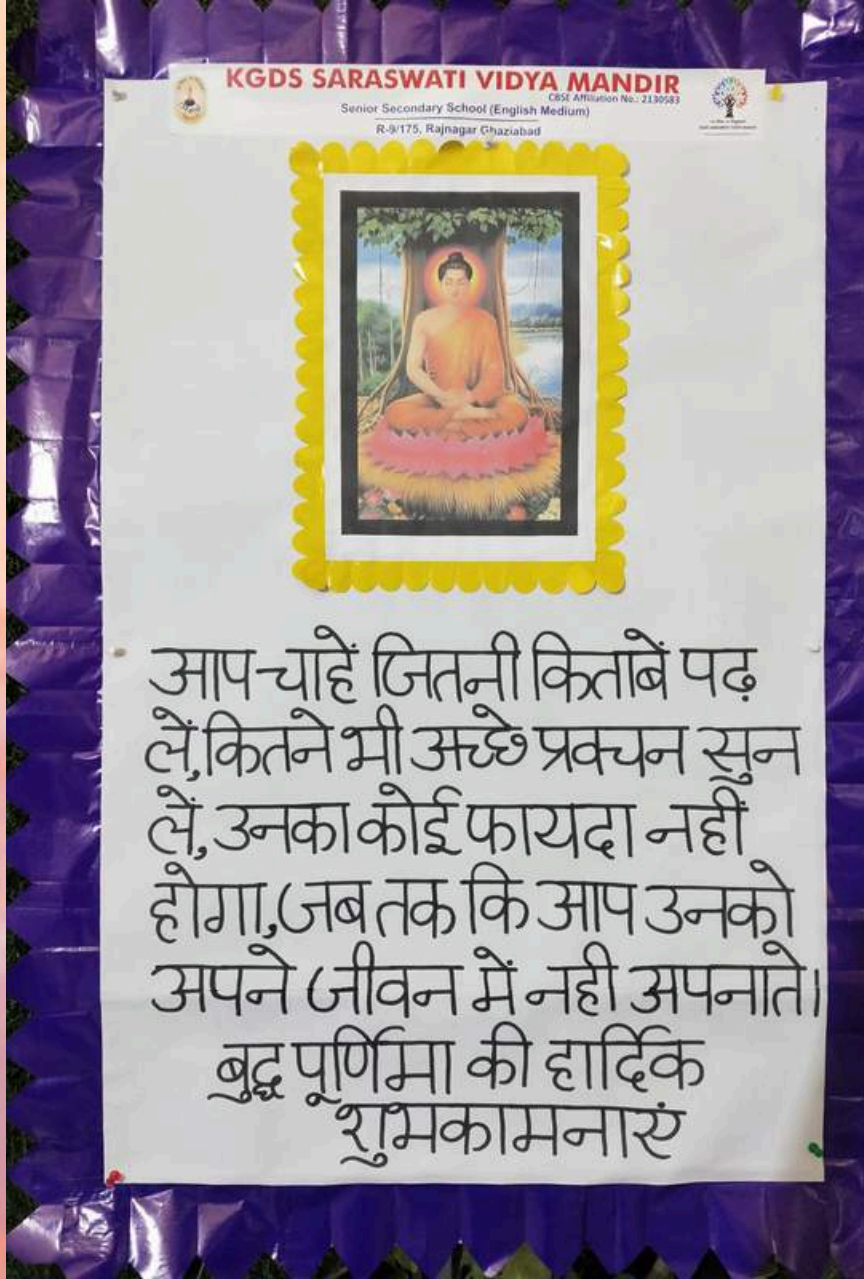 KGDS SARASWATI VIDYA MANDIR
CBSE Affiliation No.: 2130583
Senior Secondary School (English Medium)
R-9/175, Rajnagar Ghaziabad
आप चाहें जितनी किताबें पढ़
लें, कितने भी अच्छे प्रवचन सुन
लें, उनका कोई फायदा नहीं
होगा, जब तक कि आप उनको
अपने जीवन में नही अपनाते।
बुद्ध पूर्णिमा की हार्दिक
शुभकामनाएं